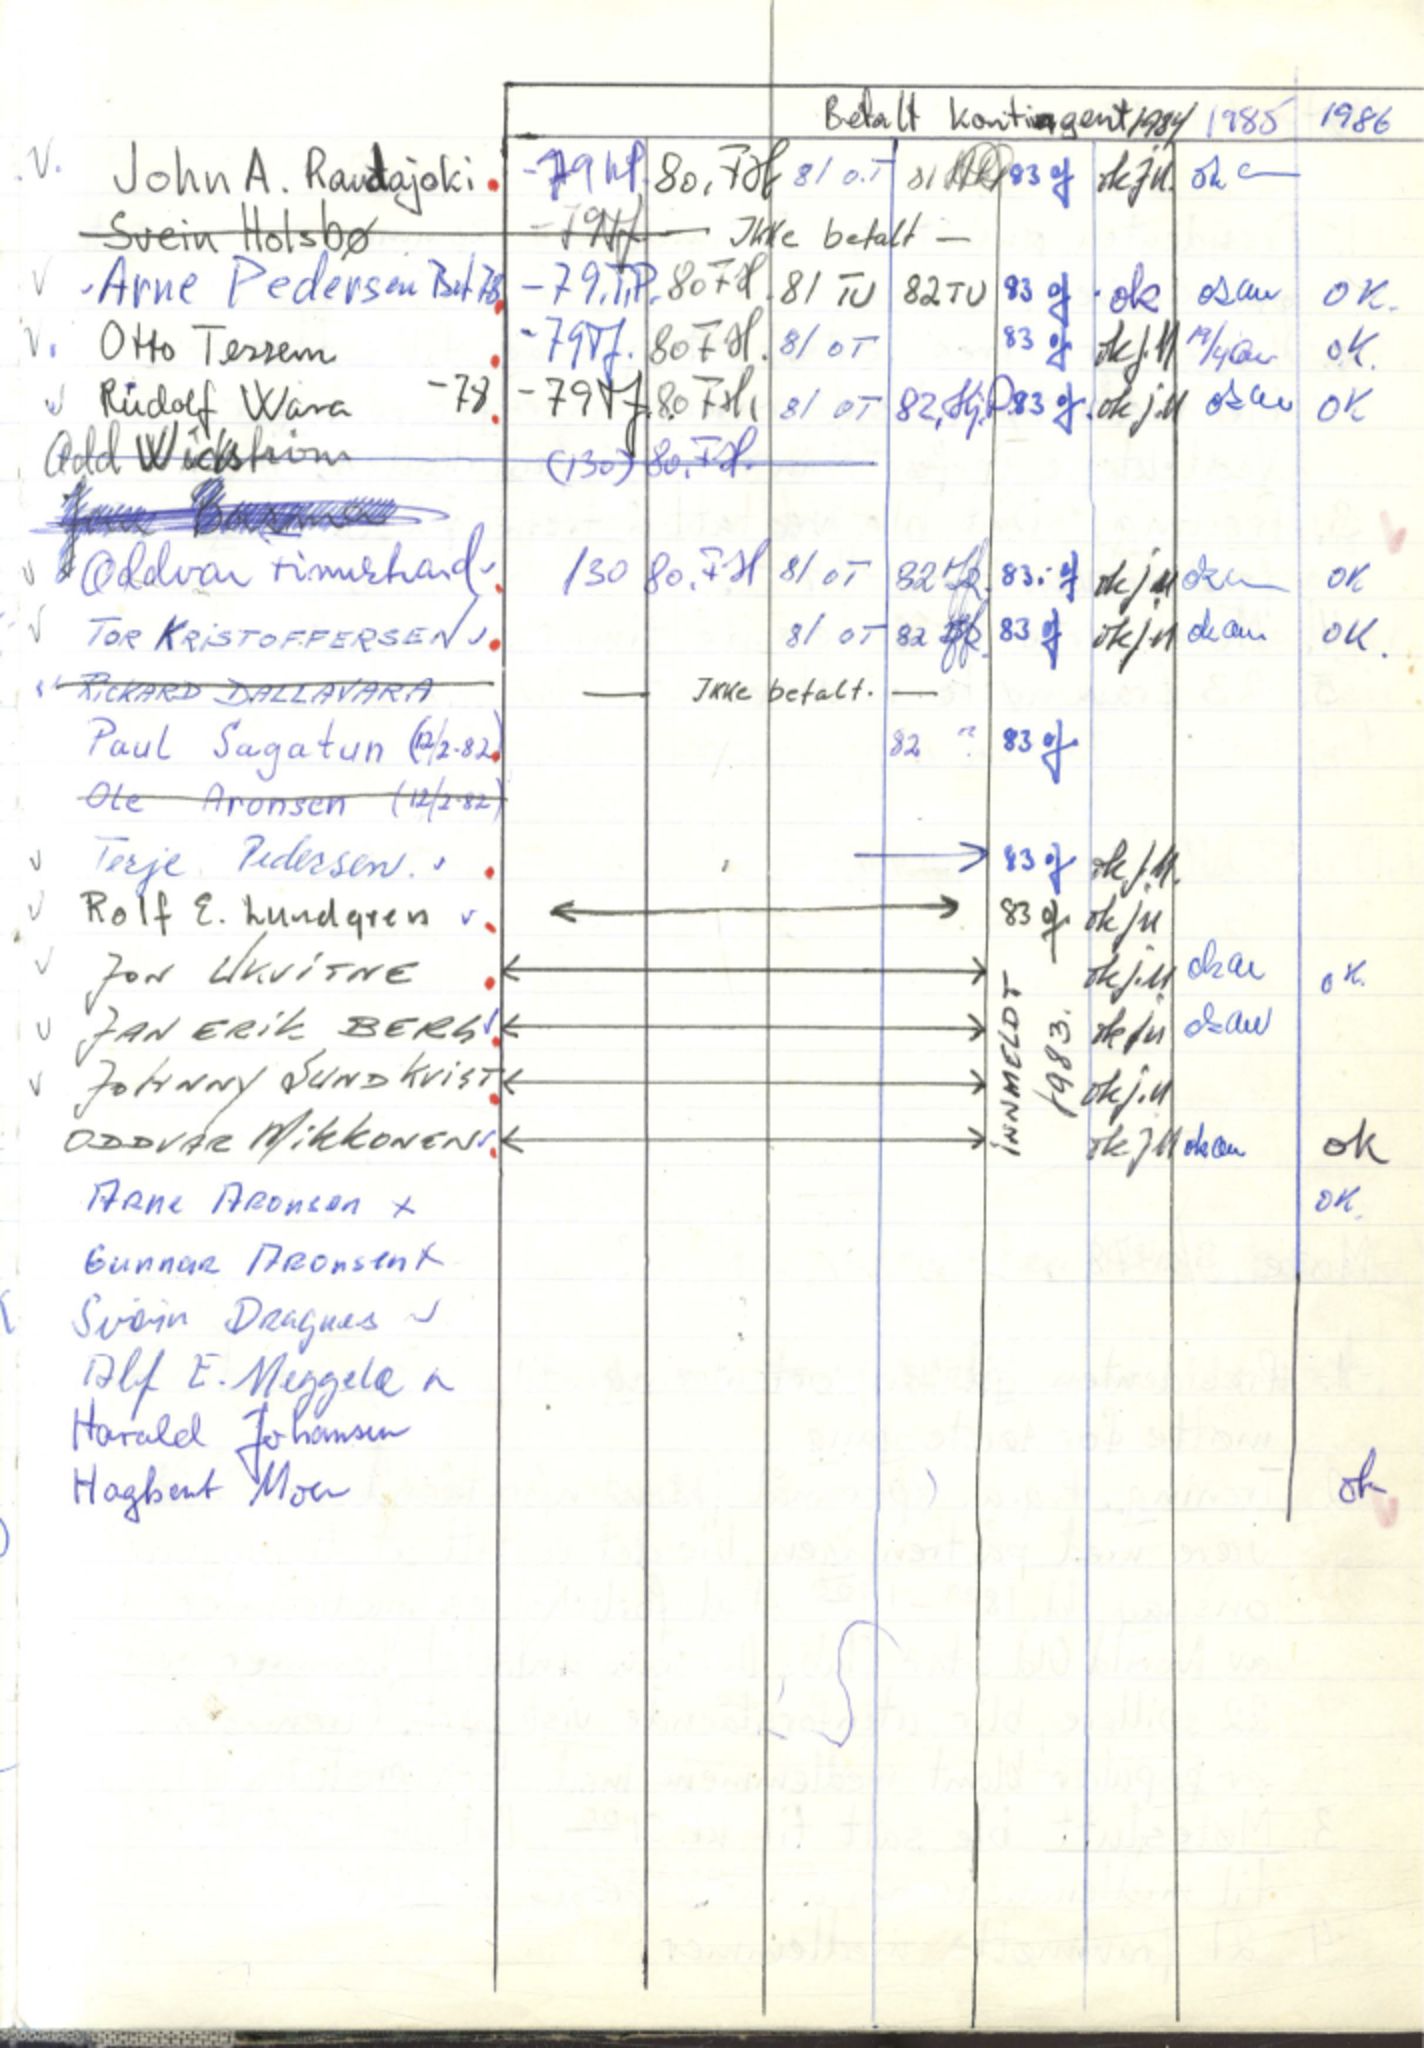 Betalt Kontingent 1984 1985 1986
V. John A. Raudajoki -79 80. FH 81 O.T 81 83 g ok j.M. ok
Svein Holsbø -79 Ikke betalt —
V Arne Pedersen Bet 78 -79.T.P. 80 FH. 81 TU 82 TU 83 g ok OK.
V. Otto Tessem -79 80 FH. 81 OT 83 g ok j.M OK.
V Rudolf Wara -78 -79 80 FH. 81 OT 82. 83 g. ok j.M OK
Odd Wickstrøm (130) 80. FH.
V Oddvar 130 80. FH 81 OT 82 83. g ok j.M OK
V TOR KRISTOFFERSEN V 81 OT 82 83 g ok j.M OK.
RICKARD DALLAVARA — Ikke betalt. —
Paul Sagatun (12/2-82) 82 83 g.
Ole Aronsen (12/2-82)
V Terje Pedersen. V 83 g ok j.M.
V Rolf E. Lundgren V 83 g ok j.M
V JON UKVITNE ok j.M OK.
V JAN ERIK BERG V ok j.M
V JOHNNY SUNDKVIST ok j.M
ODDVAR MIKKONEN V ok j.M ok
INNMELDT 1983.
ARNE ARONSEN x OK.
GUNNAR ARONSEN x
Svein Dragnes V
Alf E. Meggele
Harald Johansen
Hagbart Moen ok